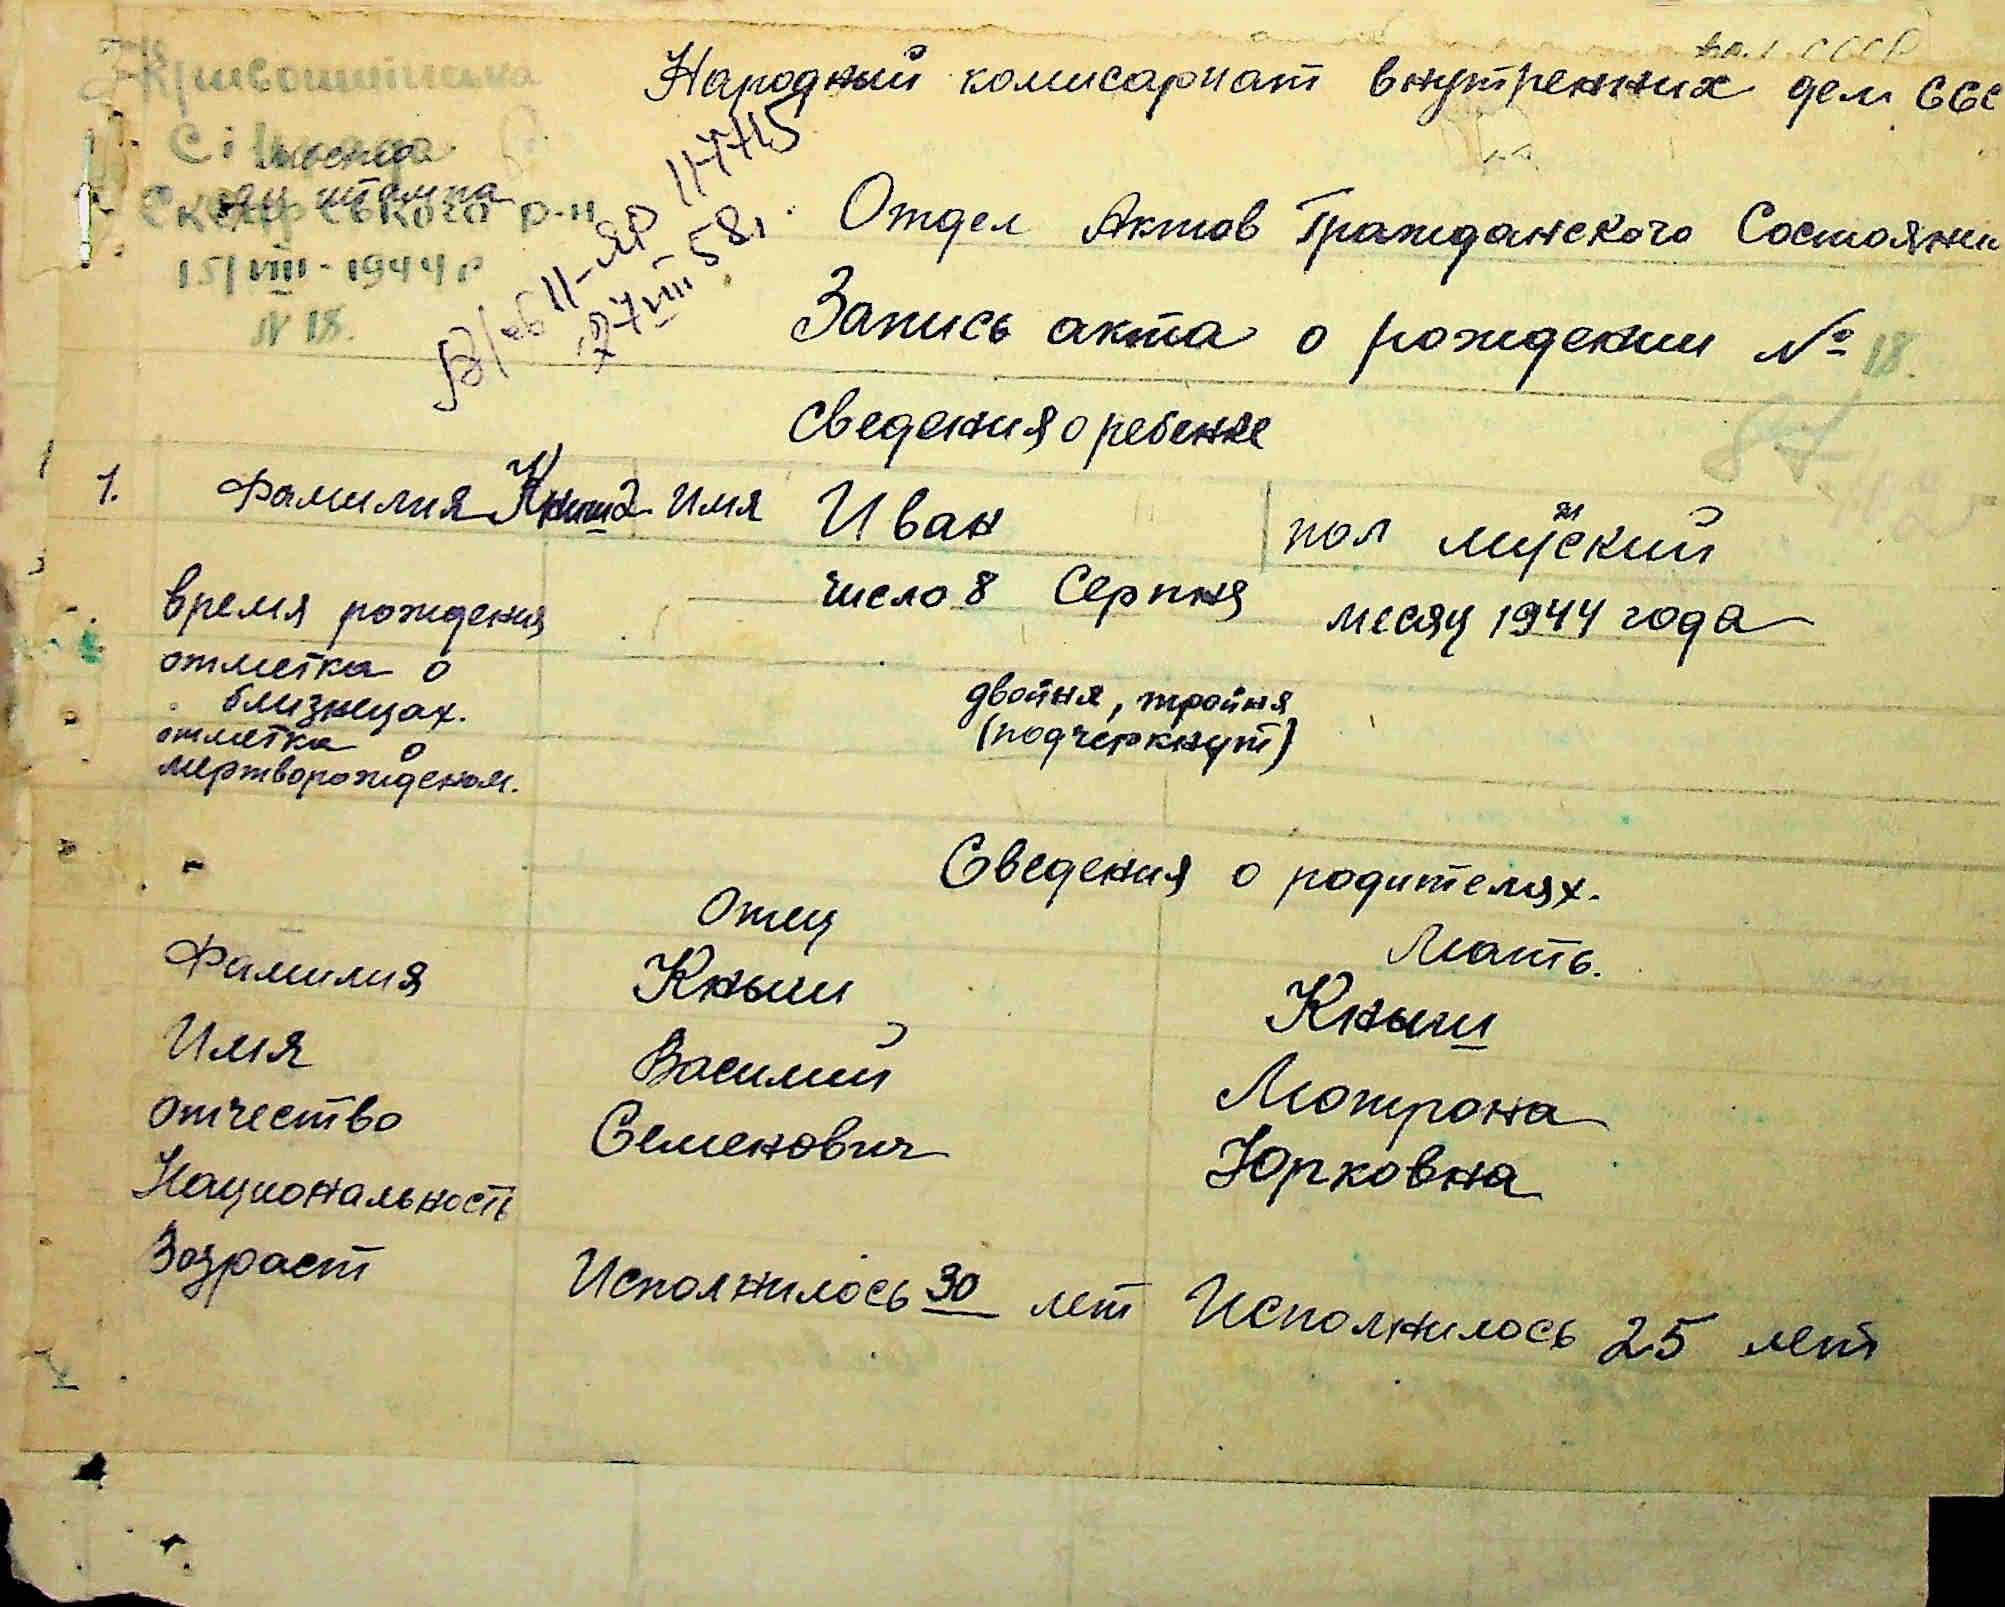 Кривошиїнська
Сільрада
место штампа
Сквирського р-н
15/VIII - 1944 р
N 18.
Народный комисариат внутренних дел ССС
11-7745
II-ЯР
27 VIII 58г.
Отдел Актов Гражданского Состояни
Запись акта о рождении № 18.
сведения о ребенке
87
1. Фамилия Кныш Имя Иван пол мужский
время рождения число 8 Серпня месяц 1944 года
отметка о
близнецах. двойня, тройня
(подчеркнут)
отметка о
мертворожденом.
Сведения о родителях.
Отец Мать.
Фамилия Кныш Кныш
Имя Василий Мотрона
отчество Семенович Юрковна
Национальность
Возраст Исполнилось 30 лет Исполнилось 25 лет